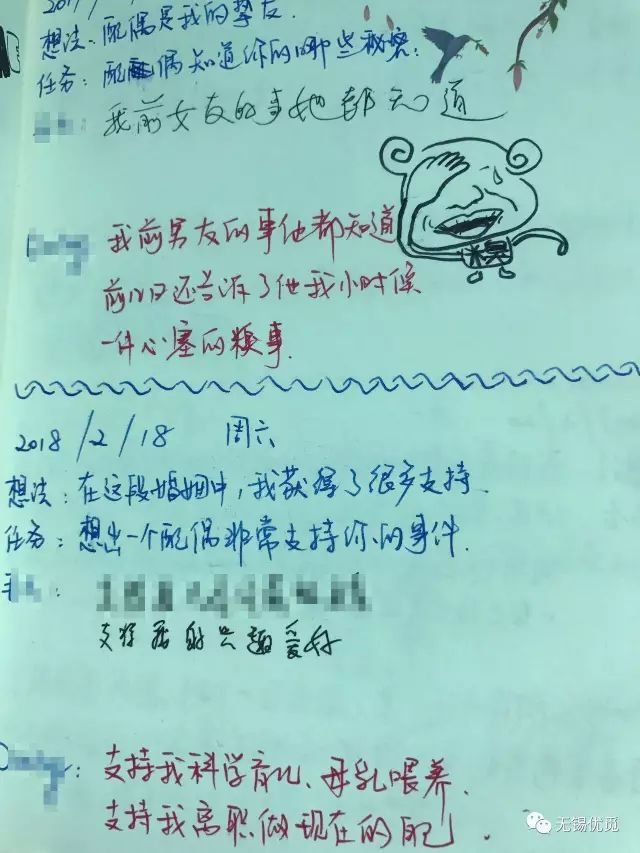 想法：配偶是我的挚友.
任务：配偶知道你的哪些秘密：
我前女友的事她都知道
我前男友的事他都知道
前几日还告诉了他我小时候
一件心塞的糗事.
2018/2/18 周六
想法：在这段婚姻中，我获得了很多支持.
任务：想出一个配偶非常支持你的事件.
支持我的兴趣爱好
支持我科学育儿、母乳喂养.
支持我离职做现在的自己.
无锡优觅